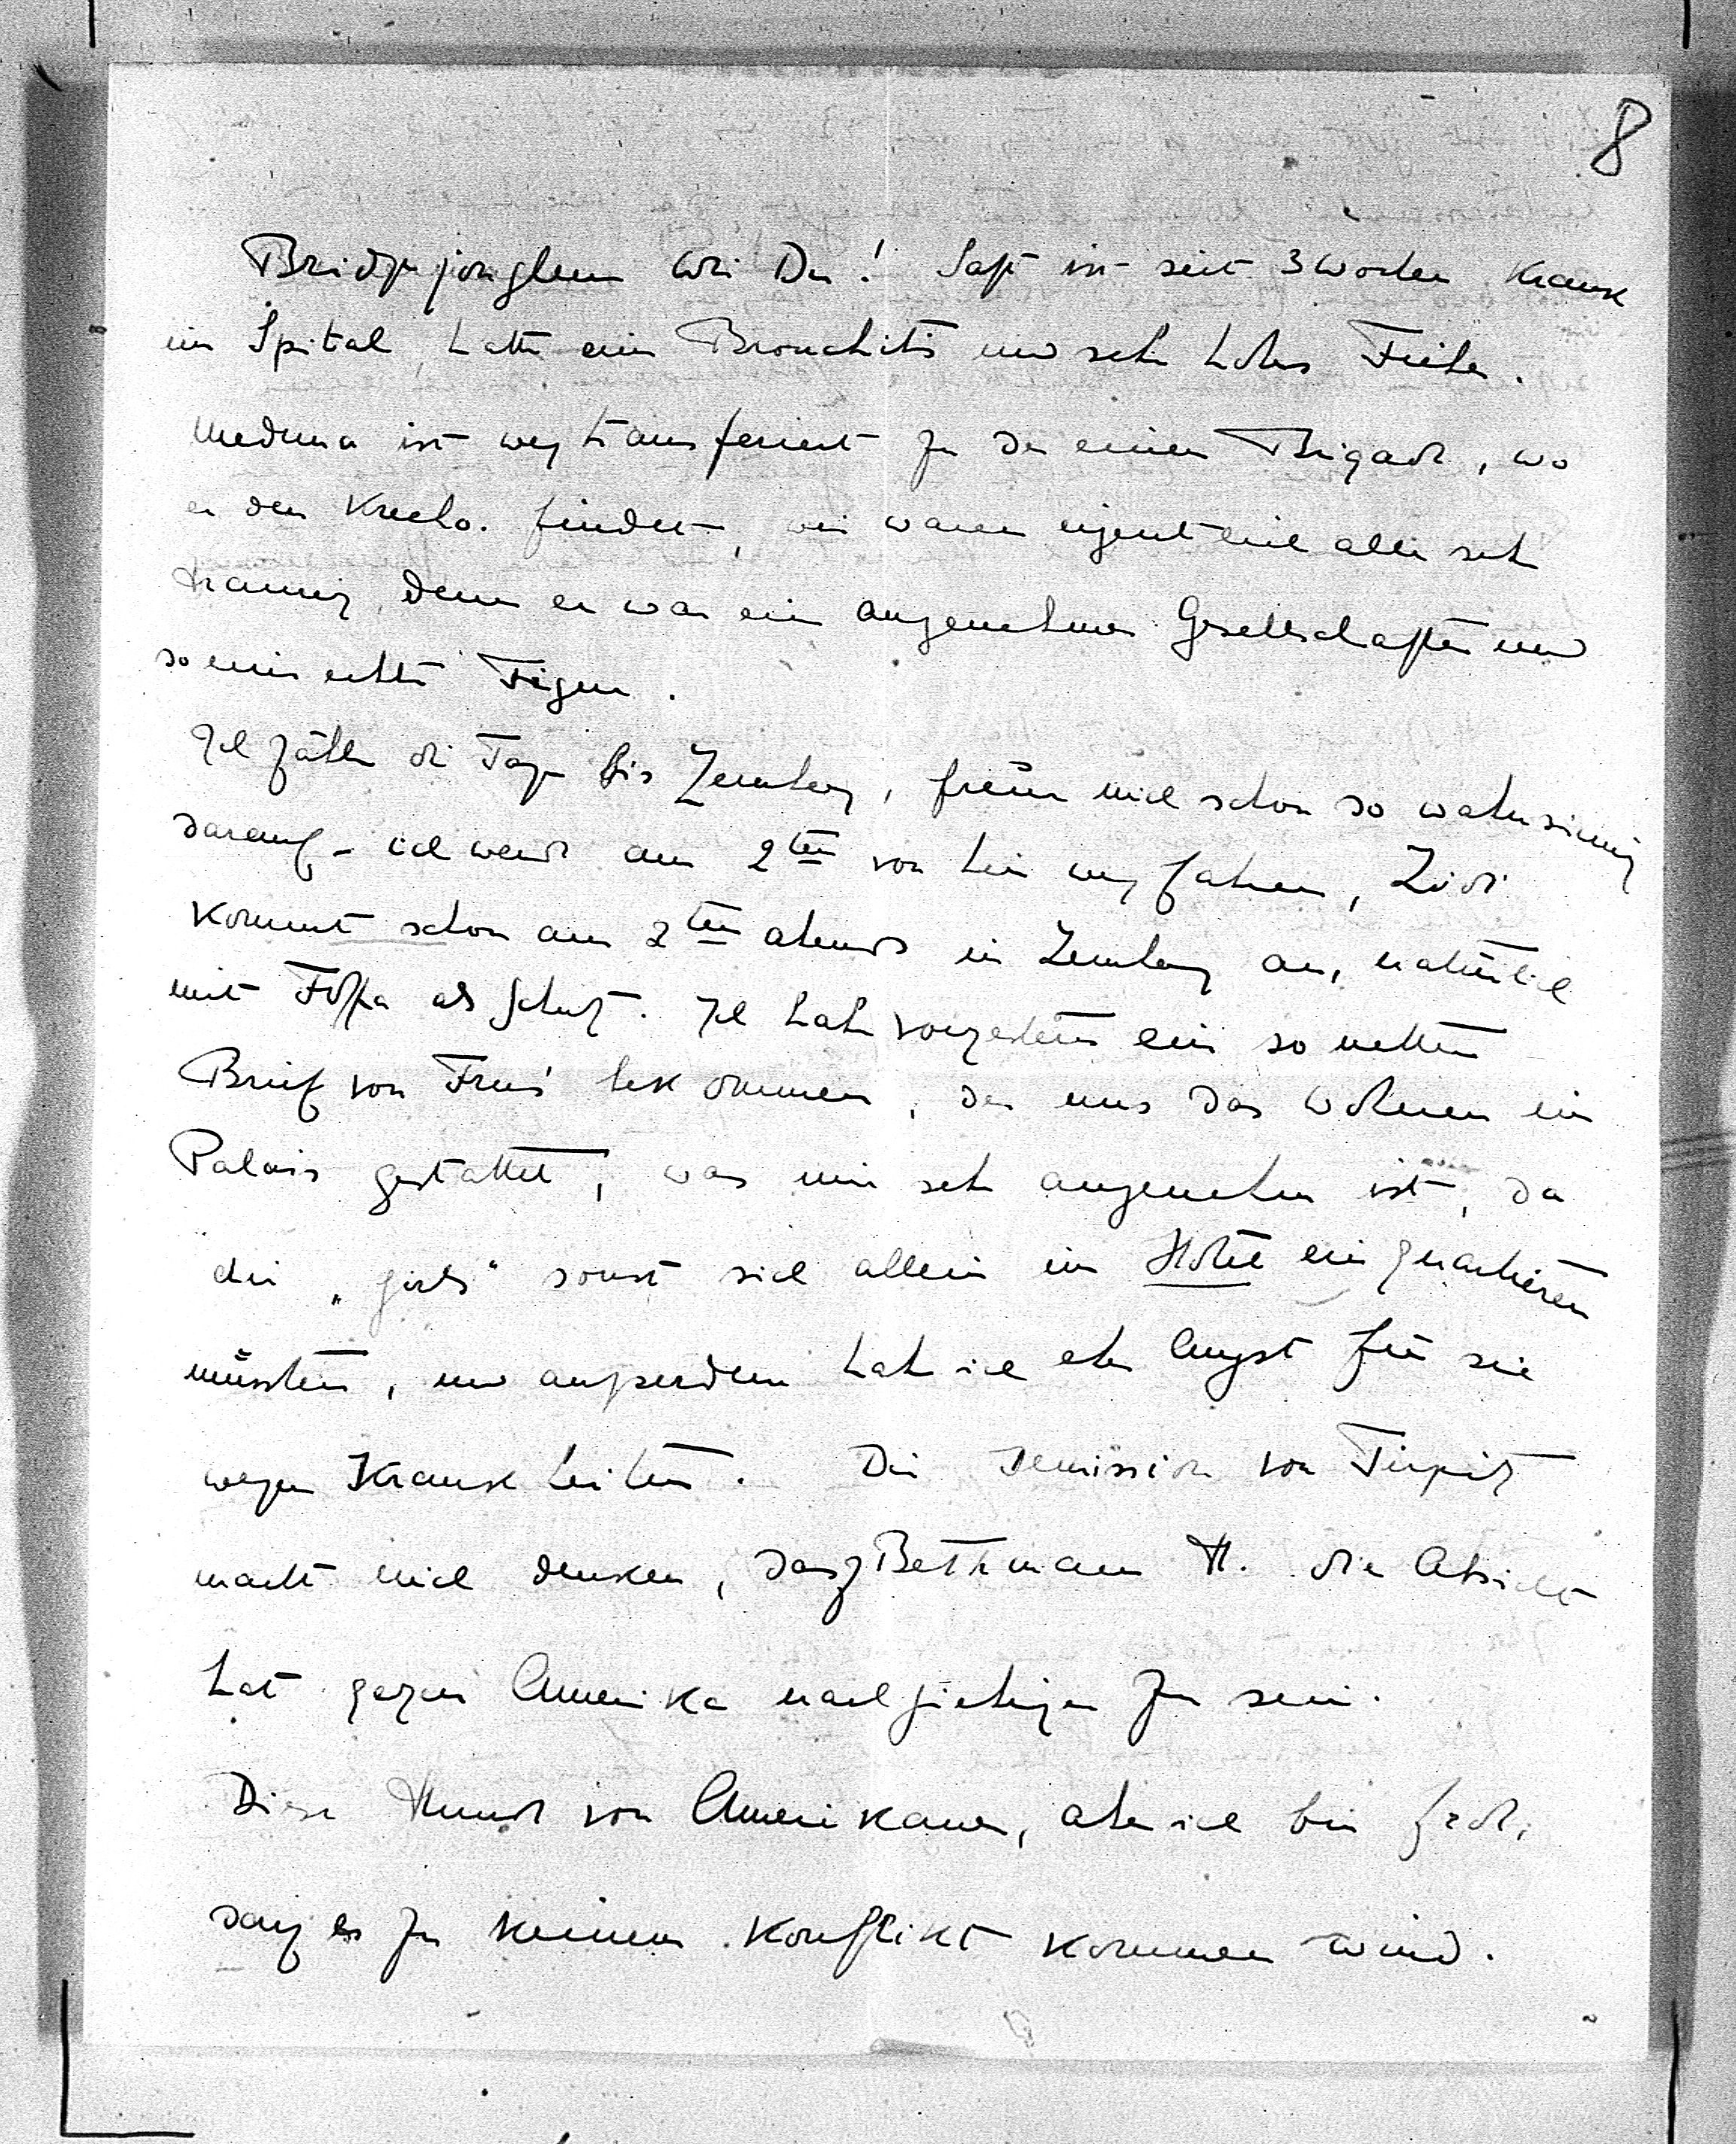 8
Bridgejongleur wie Du! Saft ist seit 3 Wochen krank
im Spital, hatte eine Bronchitis und sehr hohes Fieber.
Meduna ist wegtransferiert zu der einen Brigade, wo
er den findet, wir waren eigentlich alle sehr
traurig, denn er war ein angenehmer Gesellschafter und
so eine echte Figur.
Ich zähle die Tage bis Lemberg, freue mich schon so wahnsinnig
darauf - ich werde am 2ten von hier wegfahren,
kommt schon am 2ten abends in Lemberg an, natürlich
mit als Schutz. Ich habe vorgestern ein so netten
Brief von bekommen, der uns das Wohnen im
Palais gestattet, was mir sehr angenehm ist, da
die „girls“ sonst sich allein im Hotel einquartieren
müssten, und außerdem habe ich eher Angst für sie
wegen Krankheiten. Die Demission von Tirpitz
macht mich denken, dass Bethmann H. die Absicht
hat gegen Amerika nachgiebiger zu sein.
Diese Hunde von Amerikaner, aber ich bin froh,
dass es zu keinem Konflikt kommen wird.